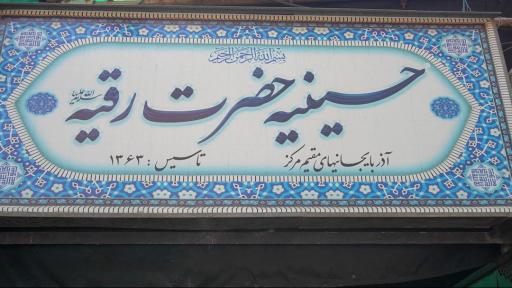 بسم الله الرحمن الرحیم
حسینیه حضرت رقیه سلام الله علیها
آذربایجانیهای مقیم مرکز
تاسیس : ۱۳۶۳